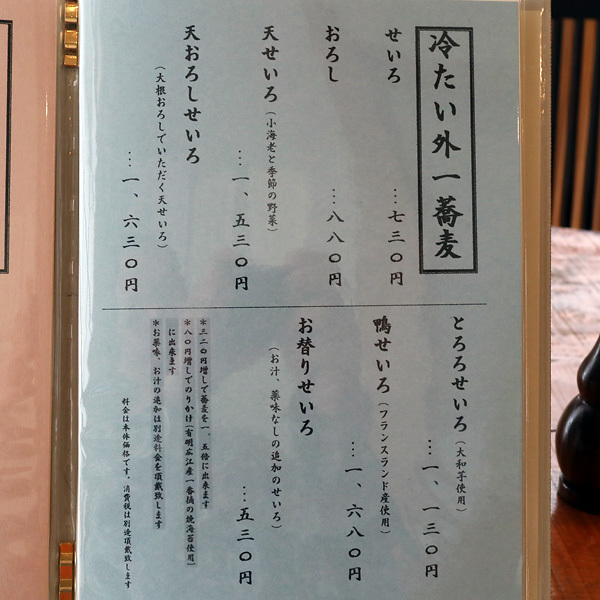 冷たい外一蕎麦
せいろ
…七三〇円
おろし
…八八〇円
天せいろ（小海老と季節の野菜）
…一、五三〇円
天おろしせいろ
（大根おろしでいただく天せいろ）
…一、六三〇円
とろろせいろ（大和芋使用）
…一、一三〇円
鴨せいろ（フランスランド産使用）
…一、六八〇円
お替りせいろ
（お汁、薬味なしの追加のせいろ）
…五三〇円
＊三二〇円増しで蕎麦を一、五倍に出来ます
＊八〇円増しでのりかけ（有明広江産一番摘の焼海苔使用）
に出来ます
＊お薬味、お汁の追加は別途料金を頂戴致します
料金は本体価格です。消費税は別途頂戴致します